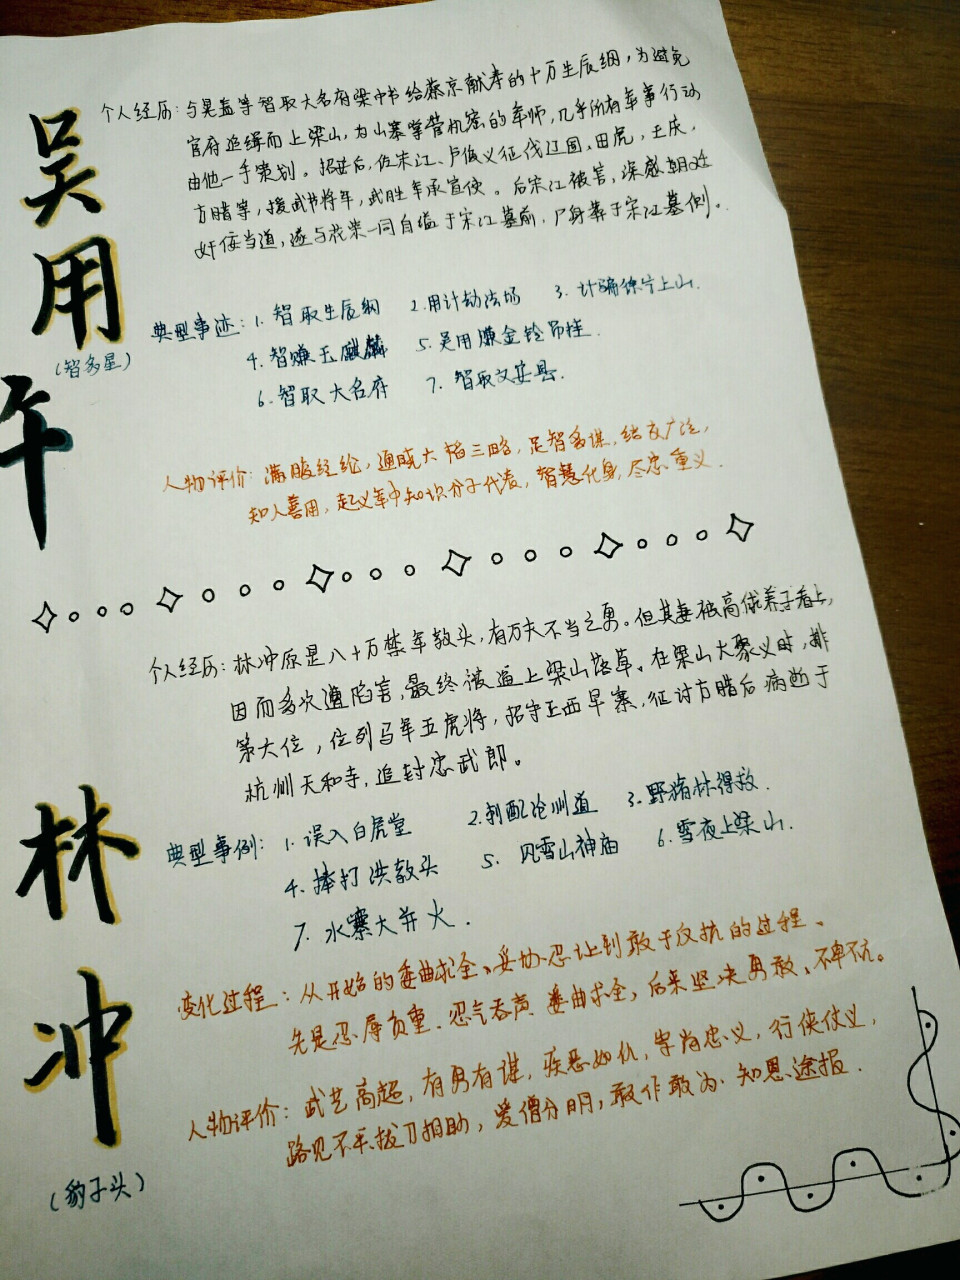 吴用
(智多星)
个人经历：与晁盖等智取大名府梁中书给蔡京献奉的十万生辰纲，为避免
官府追缉而上梁山，为山寨掌管机密的军师，几乎所有军事行动
由他一手策划。招安后，佐宋江、卢俊义征伐辽国、田虎，王庆，
方腊等，授武节将军，武胜军承宣使。后宋江被害，深感朝廷
奸佞当道，遂与花荣一同自缢于宋江墓前，尸身葬于宋江墓侧。
典型事迹：1. 智取生辰纲 2.用计劫法场 3. 计骗徐宁上山.
4. 智赚玉麒麟 5. 吴用赚金铃吊挂.
6. 智取大名府 7. 智取文安县.
人物评价：满腹经纶，通晓六韬三略，足智多谋，结交广泛，
知人善用，起义军中知识分子代表，智慧化身，尽忠重义.
午
林冲
(豹子头)
个人经历：林冲原是八十万禁军教头，有万夫不当之勇。但其妻被高俅养子看上，
因而多次遭陷害，最终被逼上梁山落草。在梁山大聚义时，排
第六位，位列马军五虎将，把守正西旱寨，征讨方腊后病逝于
杭州六和寺，追封忠武郎。
典型事例：1. 误入白虎堂 2.刺配沧州道 3. 野猪林得救.
4. 捧打洪教头 5. 风雪山神庙 6. 雪夜上梁山.
7. 水寨大并火.
变化过程：从开始的委曲求全、妥协忍让到敢于反抗的过程、
先是忍辱负重. 忍气吞声 委曲求全，后来坚决勇敢、不卑不亢。
人物评价：武艺高超，有勇有谋，疾恶如仇，崇尚忠义，行侠仗义，
路见不平拔刀相助，爱憎分明，敢作敢为. 知恩途报.